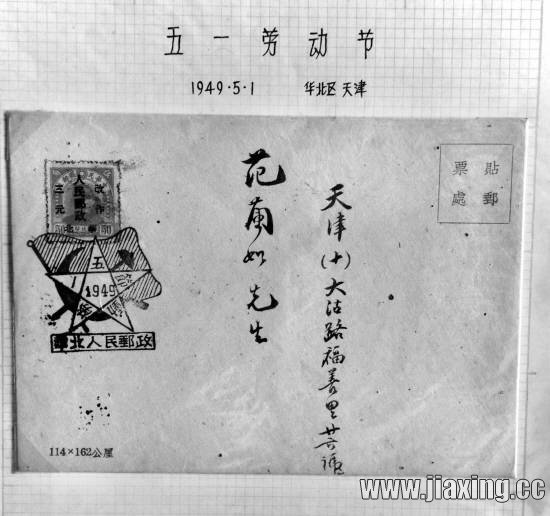 五一劳动节
1949·5·1 华北区 天津
貼郵
票處
天津(十)大沽路福善里廿六號
范蘭如先生
改作
人民郵政
三元
五
1949
華北人民郵政
114×162公厘
www.jiaxing.cc